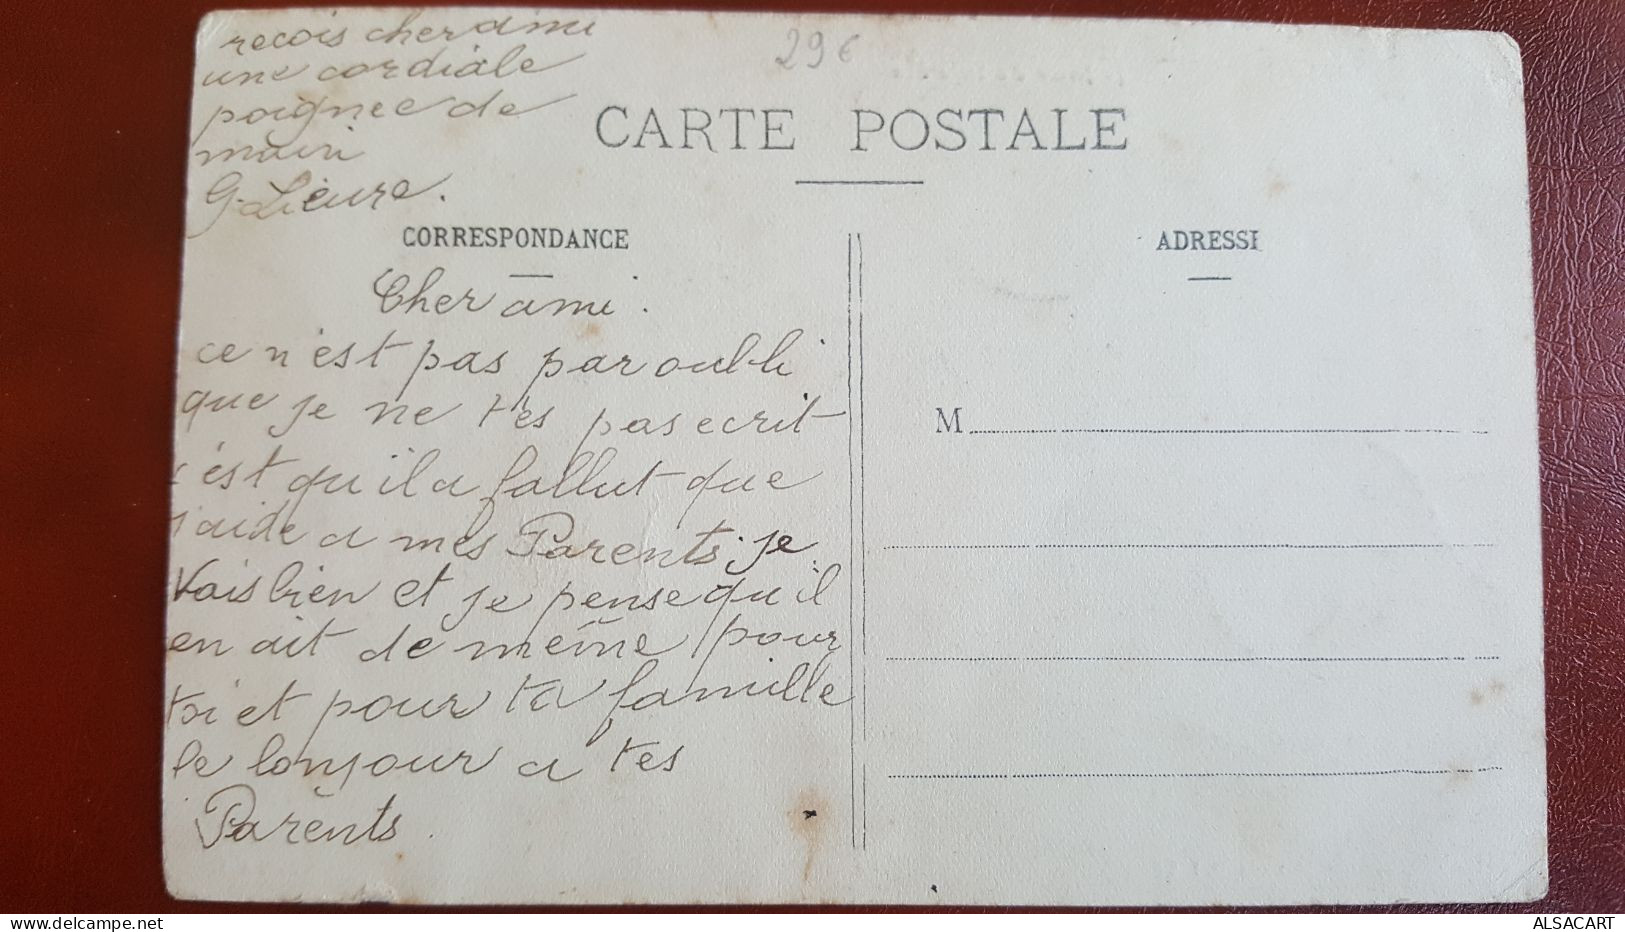 recois cher ami
une cordiale
poignee de
main
G. Lieure.
29€
CARTE POSTALE
CORRESPONDANCE
ADRESSE
Cher ami.
ce n'est pas par oubli
que je ne t'es pas ecrit
c'est qu'il a fallut que
j'aide a mes Parents. je
Vais bien et je pense qu'il
en ait de même pour
toi et pour ta famille
le bonjour a tes
Parents.
M
ALSACART